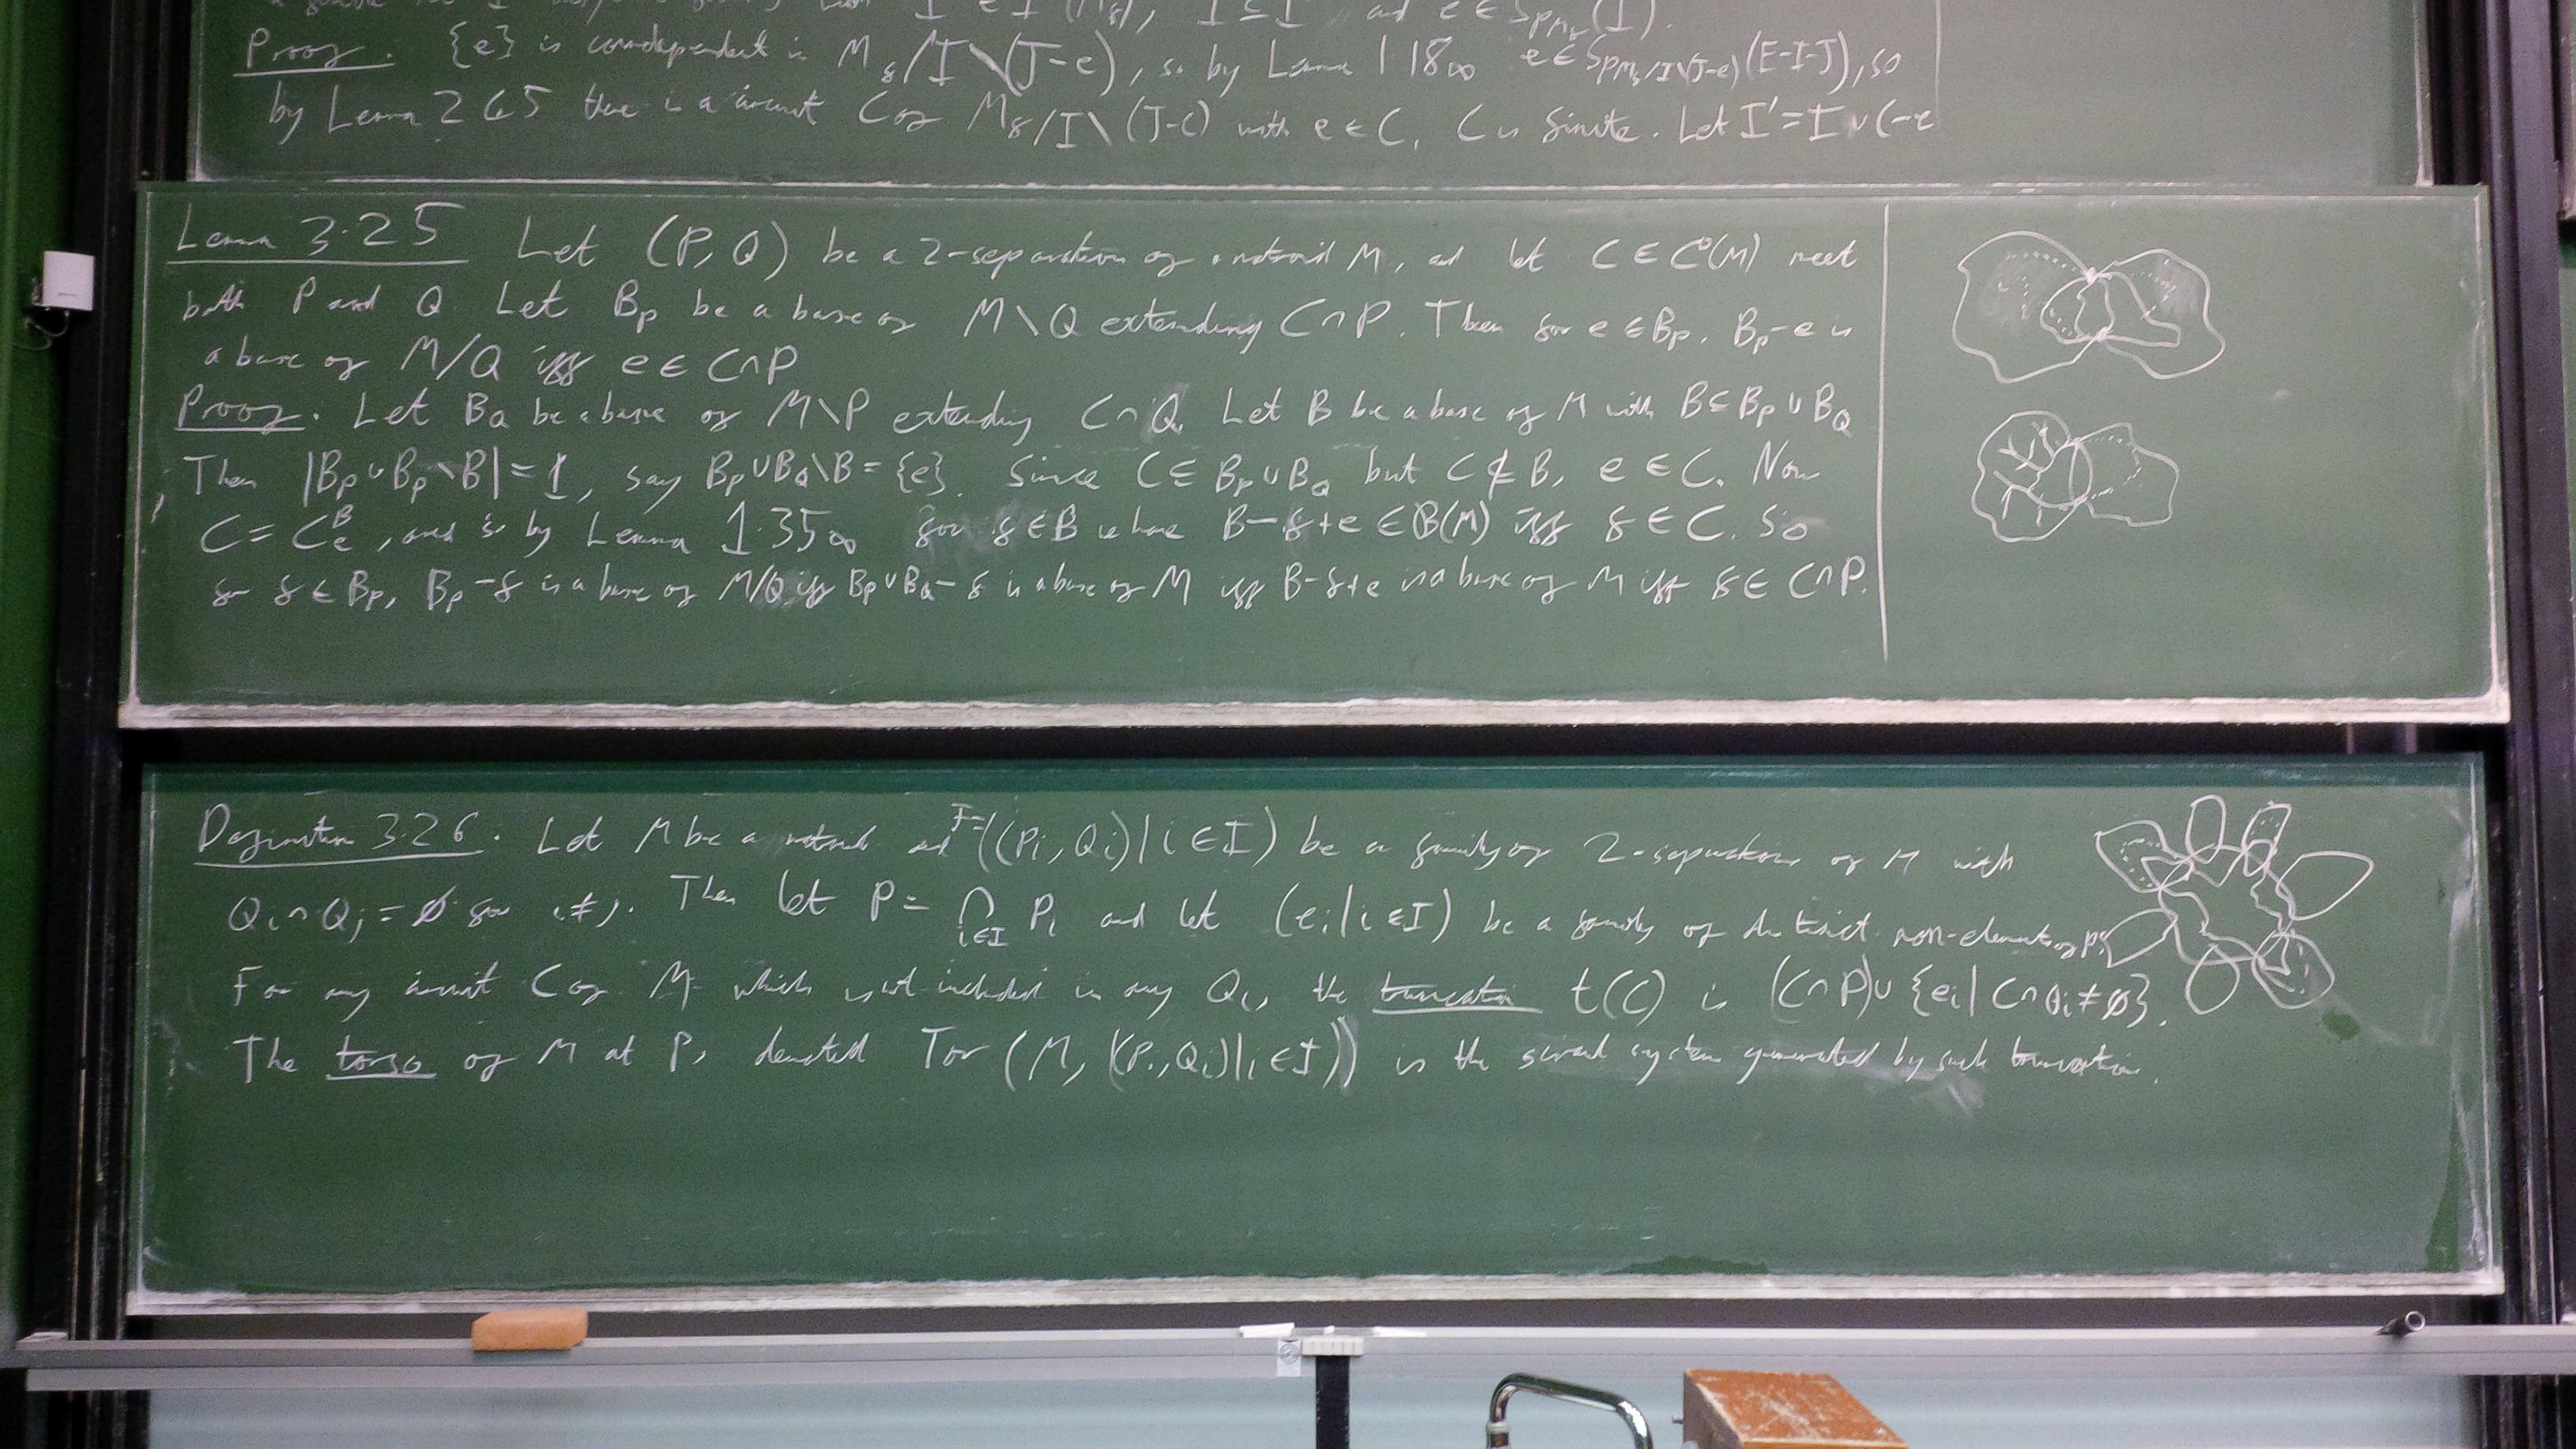 I ∈ I(M), I ⊆ I and e ∈ Sp (I).
Proof. {e} is coindependent in M_s/I\(J-e), so by Lemma 1.18∞ e ∈ Sp_{M_s/I\(J-e)}(E-I-J), so
by Lemma 2.65 there is a circuit C of M_s/I\(J-e) with e ∈ C. C is finite. Let I' = I ∪ C-e
Lemma 3.25 Let (P, Q) be a 2-separation of a matroid M, and let C ∈ C(M) meet
both P and Q. Let B_P be a base of M\Q extending C∩P. Then for e ∈ B_P, B_P-e is
a base of M/Q iff e ∈ C∩P
Proof. Let B_Q be a base of M\P extending C∩Q. Let B be a base of M with B ⊆ B_P ∪ B_Q
Then |B_P ∪ B_P \ B| = 1, say B_P ∪ B_Q \ B = {e}. Since C ⊆ B_P ∪ B_Q but C ⊄ B, e ∈ C. Now
C = C_e^B, and so by Lemma 1.35∞ for f ∈ B we have B-f+e ∈ B(M) iff f ∈ C. So
for f ∈ B_P, B_P-f is a base of M/Q iff B_P ∪ B_Q-f is a base of M iff B-f+e is a base of M iff f ∈ C∩P.
Definition 3.26. Let M be a matroid and F=((P_i, Q_i) | i ∈ I) be a family of 2-separations of M with
Q_i ∩ Q_j = ∅ for i ≠ j. Then let P = ⋂_{i∈I} P_i and let (e_i | i ∈ I) be a family of distinct non-elements of P.
For any circuit C of M which is not included in any Q_i, the truncation t(C) is (C∩P) ∪ {e_i | C∩Q_i ≠ ∅}.
The torso of M at P, denoted Tor(M, (P_i, Q_i) | i ∈ I)) is the scrawl system generated by such truncations.